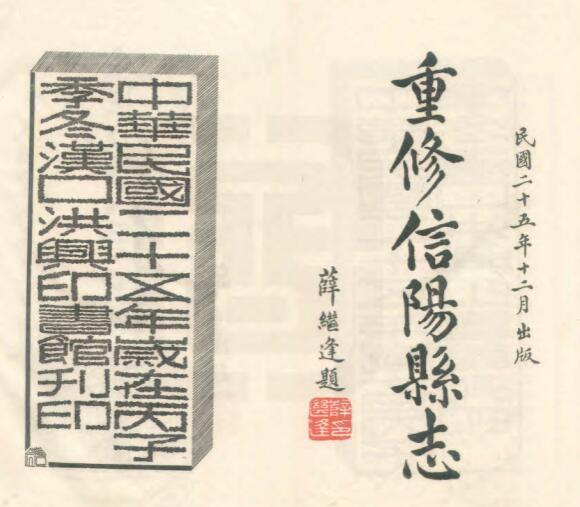 民國二十五年十二月出版
重修信陽縣志
薛繼逢題
薛印繼逢
中華民國二十五年歲在丙子
季冬漢口洪興印書館刊印